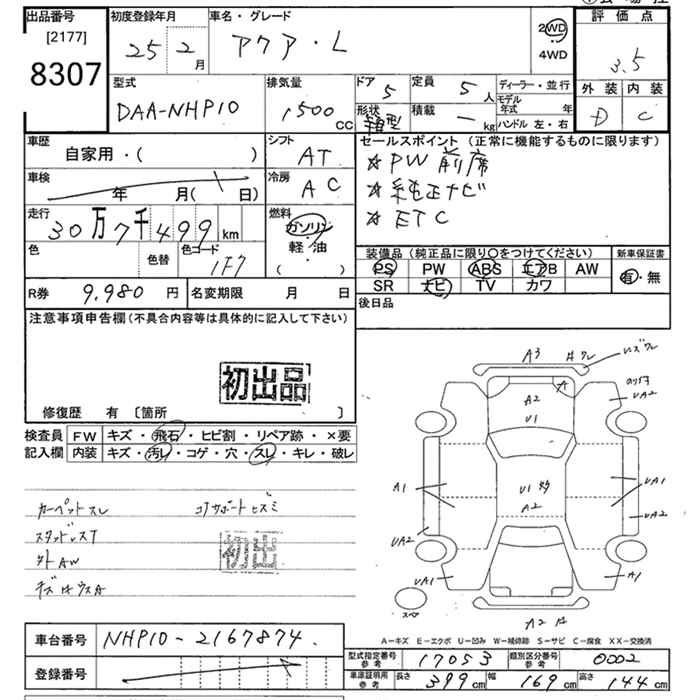 出品番号
[2177]
8307
初度登録年月
25 2
月
車名・グレード
アクア・L
2WD
4WD
評価点
3.5
外装 内装
D C
型式
DAA-NHP10
排気量
1500
CC
ドア
5
定員
5人
形状
箱型
積載
— kg
ディーラー・並行
モデル年式 年
ハンドル 左・右
車歴
自家用・( )
シフト
AT
車検
年 月( 日)
冷房
AC
走行
30万7千499km
燃料
ガソリン
軽・油
( )
色
色替
色コード
1F7
セールスポイント(正常に機能するものに限ります)
☆PW 前席
☆純正ナビ
☆ETC
装備品(純正品に限り○をつけてください)
PS PW ABS エアB AW
SR ナビ TV カワ
新車保証書
有・無
R券 9,980円
名変期限 月 日
後日品
注意事項申告欄(不具合内容等は具体的に記入して下さい)
初出品
修復歴 有 〔箇所 〕
検査員記入欄
FW キズ・飛石・ヒビ割・リペア跡・×要
内装 キズ・汚レ・コゲ・穴・スレ・キレ・破レ
カーペットスレ
コアサポートサビミ
スタッドレスT
外AW
A3
A
A2
U1
UA2
A1
U1
A2
UA1
UA2
UA2
UA1
A1
スペア
A2
A-キズ E-エクボ U-凹み W-補修跡 S-サビ C-腐食 XX-交換済
車台番号 NHP10-2167874.
登録番号
型式指定番号 参考 17053
類別区分番号 参考 0002
車庫証明用 参考 長さ 399cm 幅 169cm 高さ 144cm